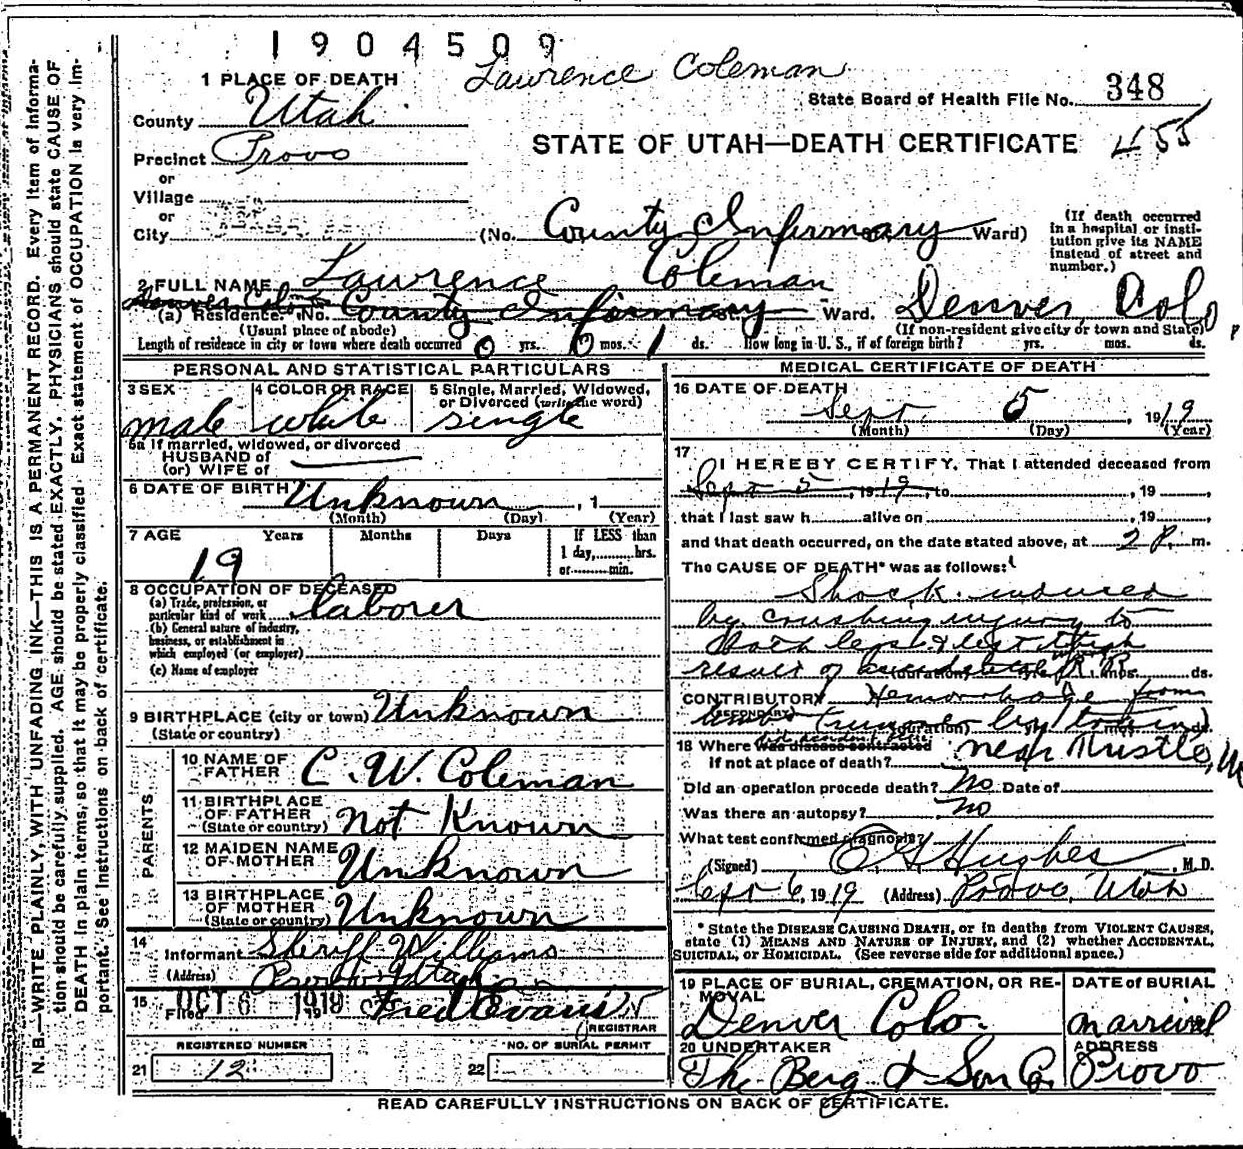 1904509
Lawrence Coleman
1 PLACE OF DEATH
State Board of Health File No. 348
County Utah
STATE OF UTAH—DEATH CERTIFICATE 455
Precinct Provo
or
Village
or
City (No. County Infirmary Ward)
(If death occurred in a hospital or institution give its NAME instead of street and number.)
2 FULL NAME Lawrence Coleman
Denver Colo
(a) Residence. No. County Infirmary Ward. Denver, Colo.
(Usual place of abode) (If non-resident give city or town and State)
Length of residence in city or town where death occurred 0 yrs. 0 mos. 1 ds. How long in U. S., if of foreign birth? yrs. mos. ds.
PERSONAL AND STATISTICAL PARTICULARS
3 SEX male
4 COLOR OR RACE white
5 Single, Married, Widowed, or Divorced (write the word) single
5a If married, widowed, or divorced
HUSBAND of
(or) WIFE of
6 DATE OF BIRTH Unknown , 1
(Month) (Day) (Year)
7 AGE Years Months Days If LESS than
19
1 day, hrs.
or min.
8 OCCUPATION OF DECEASED
(a) Trade, profession, or particular kind of work laborer
(b) General nature of industry, business, or establishment in which employed (or employer)
(c) Name of employer
9 BIRTHPLACE (city or town) Unknown
(State or country)
PARENTS
10 NAME OF FATHER C. W. Coleman
11 BIRTHPLACE OF FATHER (State or country) Not Known
12 MAIDEN NAME OF MOTHER Unknown
13 BIRTHPLACE OF MOTHER (State or country) Unknown
14 Informant Sheriff Williams
(Address) Provo Utah
15 Filed OCT 6 1919 Fred Evans
REGISTRAR
REGISTERED NUMBER NO. OF BURIAL PERMIT
21 12 22
MEDICAL CERTIFICATE OF DEATH
16 DATE OF DEATH
Sept 5, 1919
(Month) (Day) (Year)
17 I HEREBY CERTIFY, That I attended deceased from
Sept 5, 1919, to , 19 ,
that I last saw h alive on , 19 ,
and that death occurred, on the date stated above, at 2 P. m.
The CAUSE OF DEATH* was as follows:
Shock induced
by crushing injury to
both legs & left thigh
result of accident (duration) R. R. mos. ds.
CONTRIBUTORY Hemorrhage from
(SECONDARY) (run over by train)
(duration)
18 Where was disease contracted
if not at place of death? near Thistle, U
Did an operation precede death? No Date of
Was there an autopsy? No
What test confirmed diagnosis?
(Signed) Hughes M.D.
Sept 6, 1919 (Address) Provo, Utah
* State the DISEASE CAUSING DEATH, or in deaths from VIOLENT CAUSES, state (1) MEANS AND NATURE OF INJURY, and (2) whether ACCIDENTAL, SUICIDAL, or HOMICIDAL. (See reverse side for additional space.)
19 PLACE OF BURIAL, CREMATION, OR REMOVAL Denver Colo.
DATE of BURIAL on arrival
20 UNDERTAKER The Berg & Son Co.
ADDRESS Provo
READ CAREFULLY INSTRUCTIONS ON BACK OF CERTIFICATE.
N. B.—WRITE PLAINLY, WITH UNFADING INK—THIS IS A PERMANENT RECORD. Every item of information should be carefully supplied. AGE should be stated EXACTLY. PHYSICIANS should state CAUSE OF DEATH in plain terms, so that it may be properly classified. Exact statement of OCCUPATION is very important. See instructions on back of certificate.